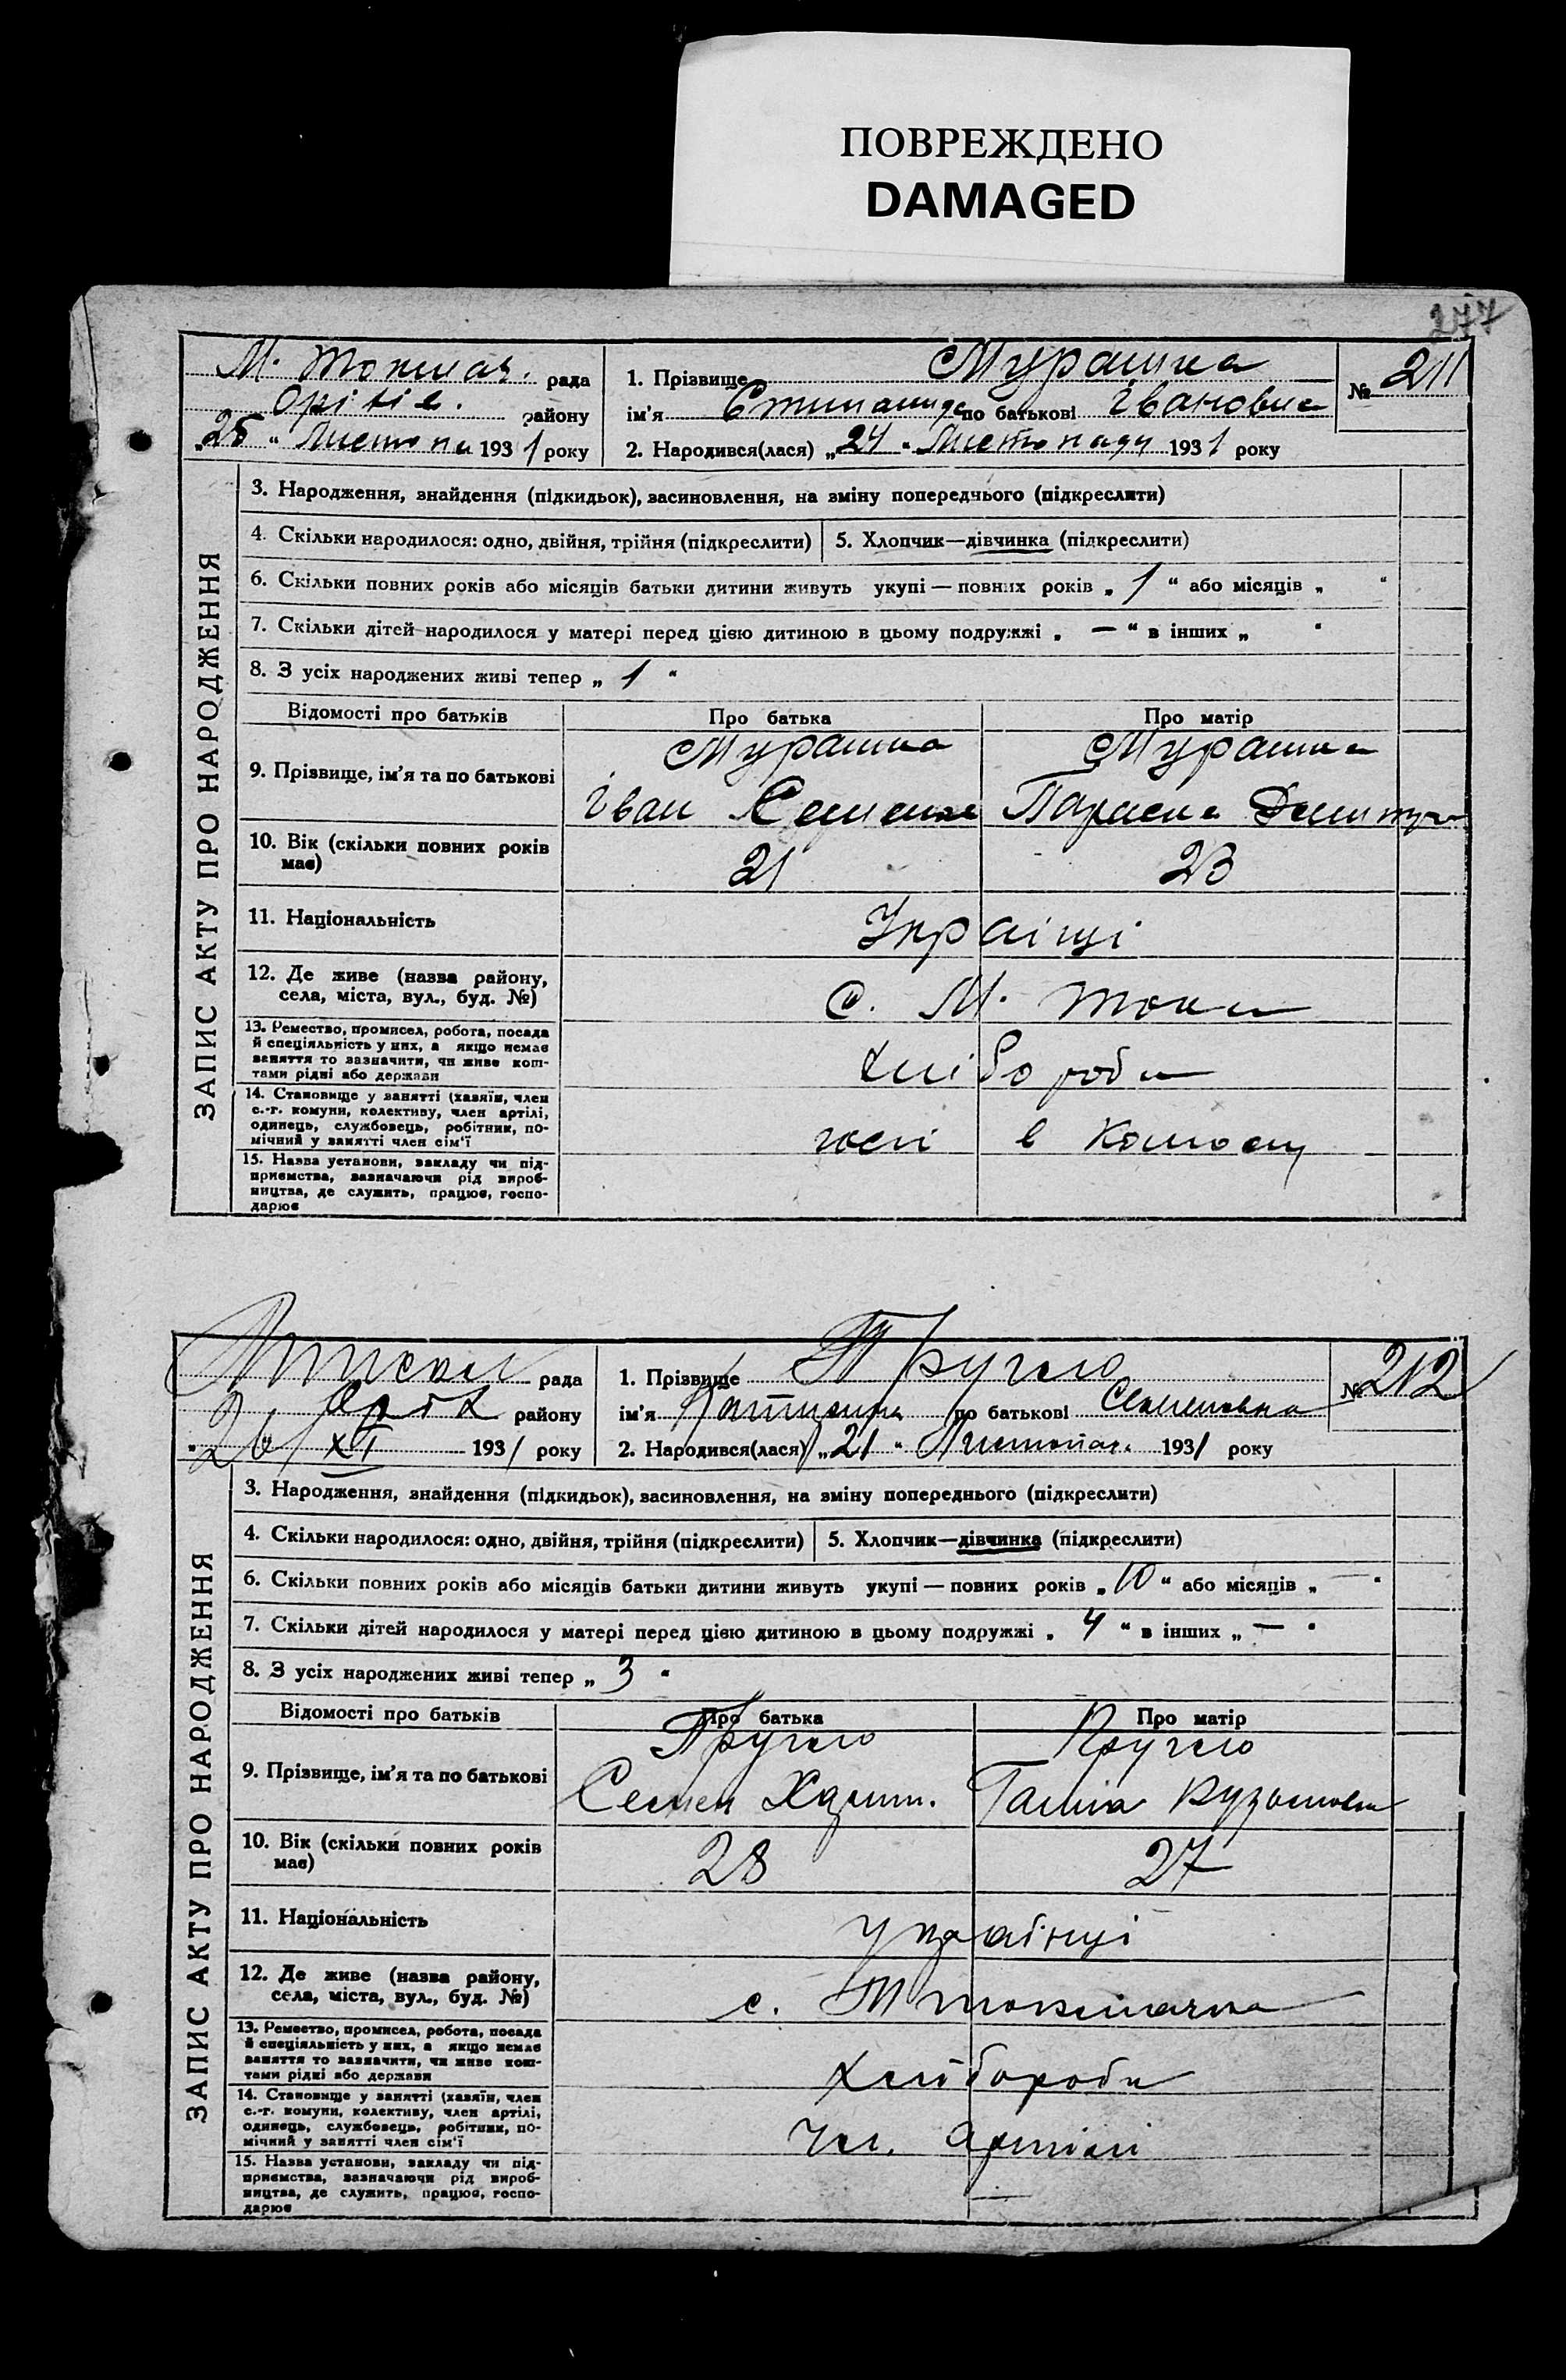 ПОВРЕЖДЕНО
DAMAGED
277
М. Токмач. рада
Оріхів. району
„25“ Листопа 1931 року
1. Прізвище Мурашка
№ 211
ім'я по батькові Івановна
2. Народився(лася) „24“ Листопаду 1931 року
ЗАПИС АКТУ ПРО НАРОДЖЕННЯ
3. Народження, знайдення (підкидьок), засиновлення, на зміну попереднього (підкреслити)
4. Скільки народилося: одно, двійня, трійня (підкреслити)
5. Хлопчик—дівчинка (підкреслити)
6. Скільки повних років або місяців батьки дитини живуть укупі — повних років „ 1 “ або місяців „ “
7. Скільки дітей народилося у матері перед цією дитиною в цьому подружжі „ — “ в інших „ “
8. З усіх народжених живі тепер „ 1 “
Відомості про батьків
Про батька
Про матір
9. Прізвище, ім'я та по батькові
Мурашка
Мурашка
Іван Семенов
Параска
10. Вік (скільки повних років має)
21
23
11. Національність
Україці
12. Де живе (назва району, села, міста, вул., буд. №)
с. М. Токм
13. Ремество, промисел, робота, посада й спеціяльність у них, а якщо немає заняття то зазначити, чи живе коштами рідні або держави
хлібороби
14. Становище у занятті (хазяїн, член с.-г. комуни, колективу, член артілі, одинець, службовець, робітник, помічний у занятті член сім'ї
в
15. Назва установи, закладу чи підприємства, зазначаючи рід виробництва, де служить, працює, господарює
рада
району
„26“ XI 1931 року
1. Прізвище Кругло
№ 212
ім'я по батькові Семеновна
2. Народився(лася) „21“ Листопад. 1931 року
ЗАПИС АКТУ ПРО НАРОДЖЕННЯ
3. Народження, знайдення (підкидьок), засиновлення, на зміну попереднього (підкреслити)
4. Скільки народилося: одно, двійня, трійня (підкреслити)
5. Хлопчик—дівчинка (підкреслити)
6. Скільки повних років або місяців батьки дитини живуть укупі — повних років „ 10 “ або місяців „ — “
7. Скільки дітей народилося у матері перед цією дитиною в цьому подружжі „ 4 “ в інших „ — “
8. З усіх народжених живі тепер „ 3 “
Відомості про батьків
Про батька
Про матір
9. Прізвище, ім'я та по батькові
Кругло
Кругло
Семен Харит.
Ганна Кузьмовна
10. Вік (скільки повних років має)
28
27
11. Національність
українці
12. Де живе (назва району, села, міста, вул., буд. №)
с. М токмачка
13. Ремество, промисел, робота, посада й спеціяльність у них, а якщо немає заняття то зазначити, чи живе коштами рідні або держави
хлібороби
14. Становище у занятті (хазяїн, член с.-г. комуни, колективу, член артілі, одинець, службовець, робітник, помічний у занятті член сім'ї
чл. артілі
15. Назва установи, закладу чи підприємства, зазначаючи рід виробництва, де служить, працює, господарює
—